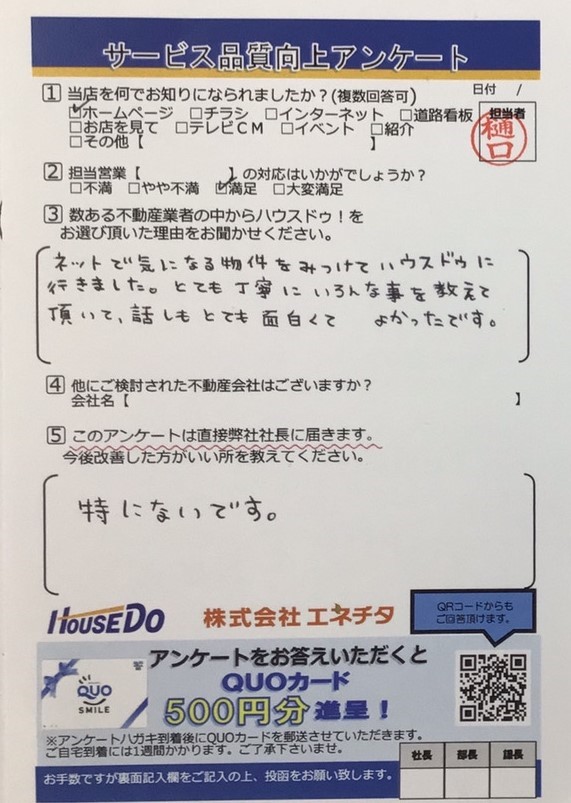 サービス品質向上アンケート
日付 /
1 当店を何でお知りになられましたか？(複数回答可)
☑ホームページ □チラシ □インターネット □道路看板
□お店を見て □テレビCM □イベント □紹介
□その他【 】
担当者
樋口
2 担当営業【 】の対応はいかがでしょうか？
□不満 □やや不満 ☑満足 □大変満足
3 数ある不動産業者の中からハウスドゥ！を
お選び頂いた理由をお聞かせください。
ネットで気になる物件をみつけてハウスドゥに
行きました。とても丁寧にいろんな事を教えて
頂いて、話しもとても面白くて よかったです。
4 他にご検討された不動産会社はございますか？
会社名【 】
5 このアンケートは直接弊社社長に届きます。
今後改善した方がいい所を教えてください。
特にないです。
HOUSEDO 株式会社 エネチタ
QRコードからも
ご回答頂けます。
アンケートをお答えいただくと
QUOカード
500円分 進呈！
QUO
SMILE
※アンケートハガキ到着後にQUOカードを郵送させていただきます。
ご自宅到着には1週間かかります。ご了承下さいませ。
お手数ですが裏面記入欄をご記入の上、投函をお願い致します。
社長 部長 課長